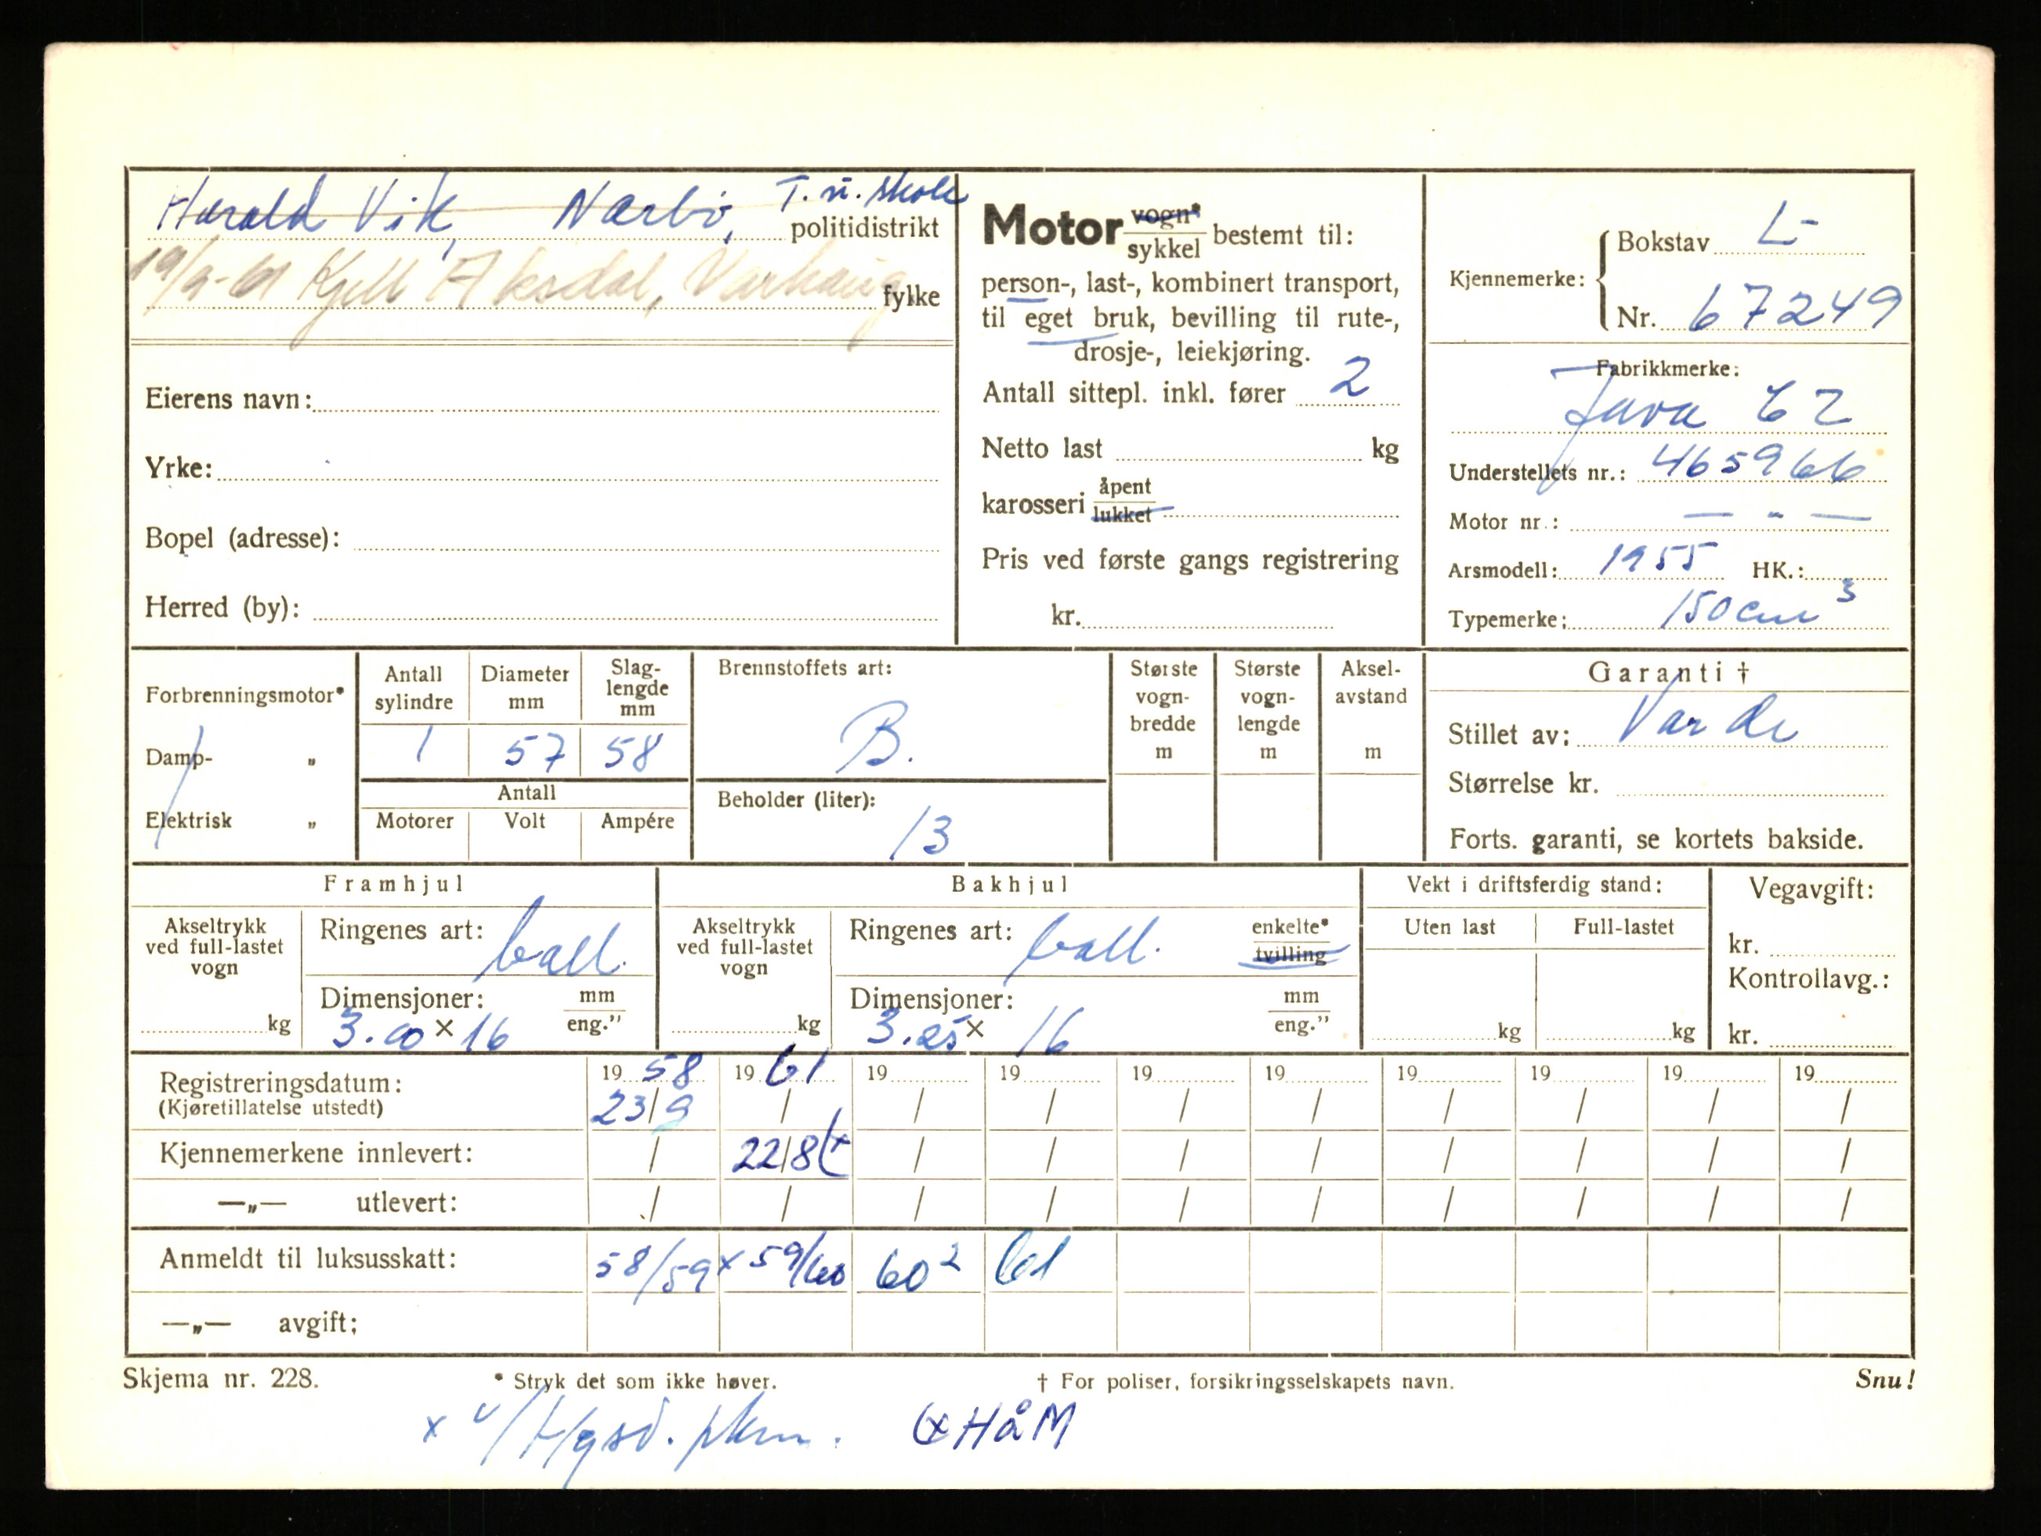 Harald Vik, Nærbø, T. u. skole
politidistrikt
19/9-61 Kjell Aksdal, Varhaug
fylke
Eierens navn:
Yrke:
Bopel (adresse):
Herred (by):
Motor vogn* / sykkel bestemt til:
person-, last-, kombinert transport,
til eget bruk, bevilling til rute-,
drosje-, leiekjøring.
Antall sittepl. inkl. fører 2
Netto last kg
karosseri åpent / lukket
Pris ved første gangs registrering
kr.
Kjennemerke: Bokstav L-
Nr. 67249
Fabrikkmerke:
Java CZ
Understellets nr.: 465966
Motor nr.: — " —
Arsmodell: 1955 HK.:
Typemerke: 150 cm³
Forbrenningsmotor*
Damp- „
Elektrisk „
Antall sylindre
1
Diameter mm
57
Slaglengde mm
58
Antall
Motorer Volt Ampére
Brennstoffets art:
B.
Beholder (liter):
13
Største vognbredde m
Største vognlengde m
Akselavstand m
Garanti †
Stillet av: Varde
Størrelse kr.
Forts. garanti, se kortets bakside.
Framhjul
Akseltrykk ved full-lastet vogn
kg
Ringenes art: ball.
Dimensjoner: mm / eng."
3.00 × 16
Bakhjul
Akseltrykk ved full-lastet vogn
kg
Ringenes art: ball. enkelte* / tvilling
Dimensjoner: mm / eng."
3.25 × 16
Vekt i driftsferdig stand:
Uten last Full-lastet
kg kg
Vegavgift:
kr.
Kontrollavg.:
kr.
Registreringsdatum: 19 58 19 61 19 19 19 19 19 19 19 19
(Kjøretillatelse utstedt) 23/9 / / / / / / / / /
Kjennemerkene innlevert: / 22/8 / / / / / / / /
—„— utlevert: / / / / / / / / / /
Anmeldt til luksusskatt: 58/59 x 59/60 60² 61
—„— avgift:
Skjema nr. 228. * Stryk det som ikke høver. † For poliser, forsikringsselskapets navn. Snu!
HåM